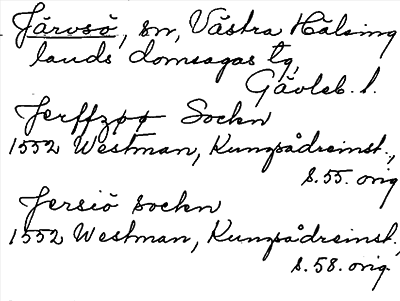 Järvsö, sn, Västra Hälsing
lands domsagas tg,
Gävleb. l.
Jerffzöö Sockn
1552 Westman, Kunzsådreinst.,
s. 55. orig
Jersiö sockn
1552 Westman, Kunzsådreinst.,
s. 58. orig.